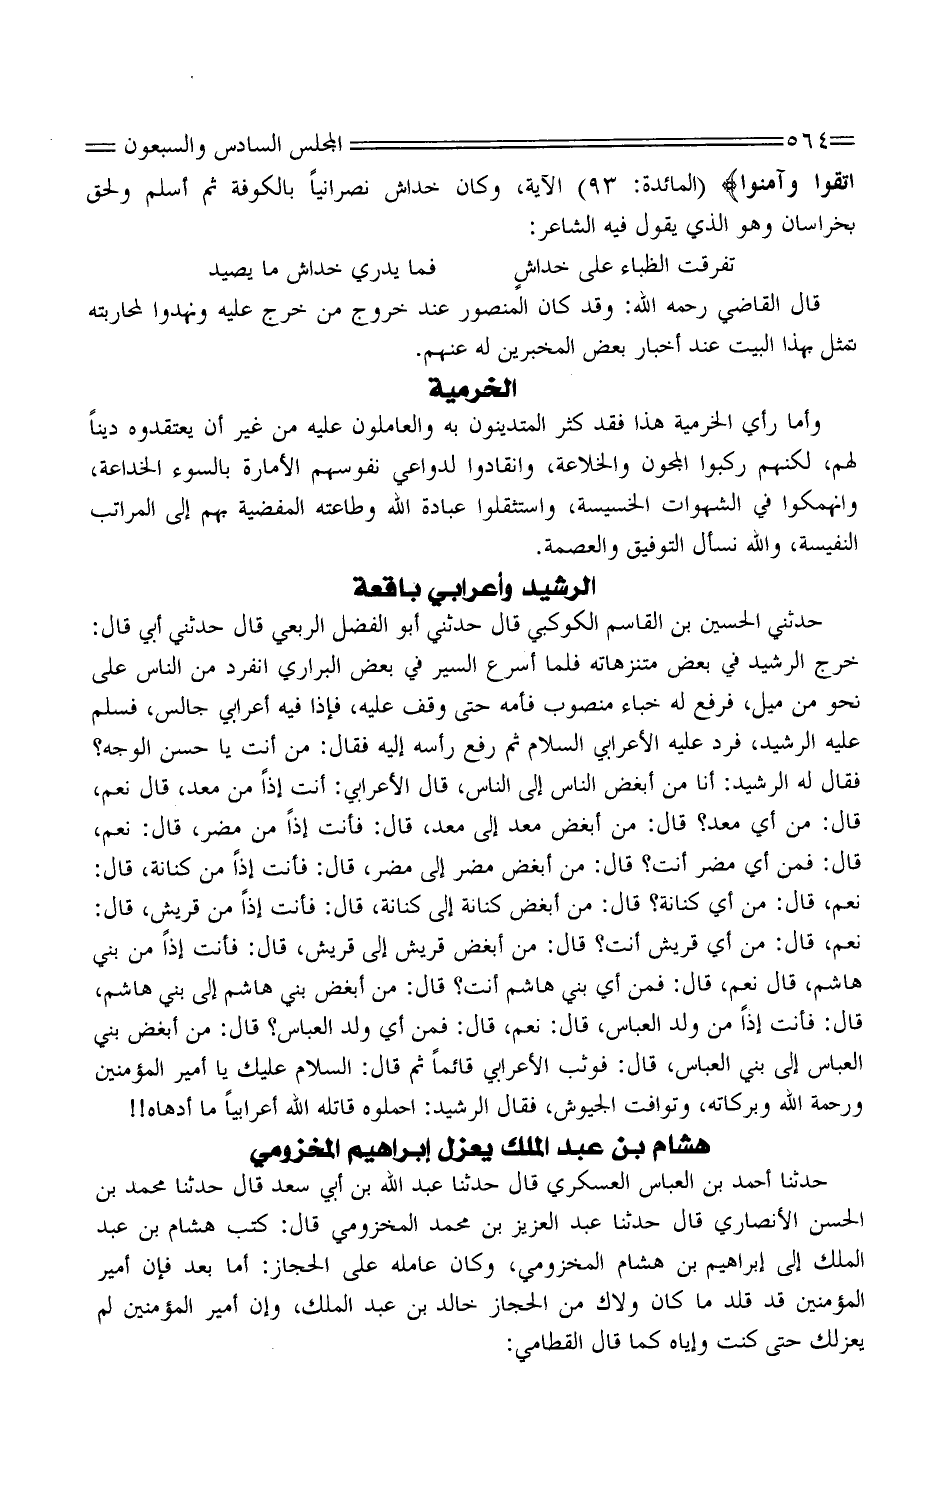 ٥٦٤ المجلس السادس والسبعون
اتقوا وآمنوا﴾ (المائدة: ٩٣) الآية، وكان خداش نصرانياً بالكوفة ثم أسلم ولحق
بخراسان وهو الذي يقول فيه الشاعر:
تفرقت الظباء على خداشٍ فما يدري خداش ما يصيد
قال القاضي رحمه الله: وقد كان المنصور عند خروج من خرج عليه ونهدوا لمحاربته
تمثل بهذا البيت عند أخبار بعض المخبرين له عنهم.
الخرمية
وأما رأي الخرمية هذا فقد كثر المتدينون به والعاملون عليه من غير أن يعتقدوه ديناً
لهم، لكنهم ركبوا المجون والخلاعة، وانقادوا لدواعي نفوسهم الأمارة بالسوء الخداعة،
وانهمكوا في الشهوات الخسيسة، واستثقلوا عبادة الله وطاعته المفضية بهم إلى المراتب
النفيسة، والله نسأل التوفيق والعصمة.
الرشيد وأعرابي باقعة
حدثني الحسين بن القاسم الكوكبي قال حدثني أبو الفضل الربعي قال حدثني أبي قال:
خرج الرشيد في بعض متنزهاته فلما أسرع السير في بعض البراري انفرد من الناس على
نحو من ميل، فرفع له خباء منصوب فأمه حتى وقف عليه، فإذا فيه أعرابي جالس، فسلم
عليه الرشيد، فرد عليه الأعرابي السلام ثم رفع رأسه إليه فقال: من أنت يا حسن الوجه؟
فقال له الرشيد: أنا من أبغض الناس إلى الناس، قال الأعرابي: أنت إذاً من معد، قال نعم،
قال: من أي معد؟ قال: من أبغض معد إلى معد، قال: فأنت إذاً من مضر، قال: نعم،
قال: فمن أي مضر أنت؟ قال: من أبغض مضر إلى مضر، قال: فأنت إذاً من كنانة، قال:
نعم، قال: من أي كنانة؟ قال: من أبغض كنانة إلى كنانة، قال: فأنت إذاً من قريش، قال:
نعم، قال: من أي قريش أنت؟ قال: من أبغض قريش إلى قريش، قال: فأنت إذاً من بني
هاشم، قال نعم، قال: فمن أي بني هاشم أنت؟ قال: من أبغض بني هاشم إلى بني هاشم،
قال: فأنت إذاً من ولد العباس، قال: نعم، قال: فمن أي ولد العباس؟ قال: من أبغض بني
العباس إلى بني العباس، قال: فوثب الأعرابي قائماً ثم قال: السلام عليك يا أمير المؤمنين
ورحمة الله وبركاته، وتوافت الجيوش، فقال الرشيد: احملوه قاتله الله أعرابياً ما أدهاه!!
هشام بن عبد الملك يعزل إبراهيم المخزومي
حدثنا أحمد بن العباس العسكري قال حدثنا عبد الله بن أبي سعد قال حدثنا محمد بن
الحسن الأنصاري قال حدثنا عبد العزيز بن محمد المخزومي قال: كتب هشام بن عبد
الملك إلى إبراهيم بن هشام المخزومي، وكان عامله على الحجاز: أما بعد فإن أمير
المؤمنين قد قلد ما كان ولاك من الحجاز خالد بن عبد الملك، وإن أمير المؤمنين لم
يعزلك حتى كنت وإياه كما قال القطامي: